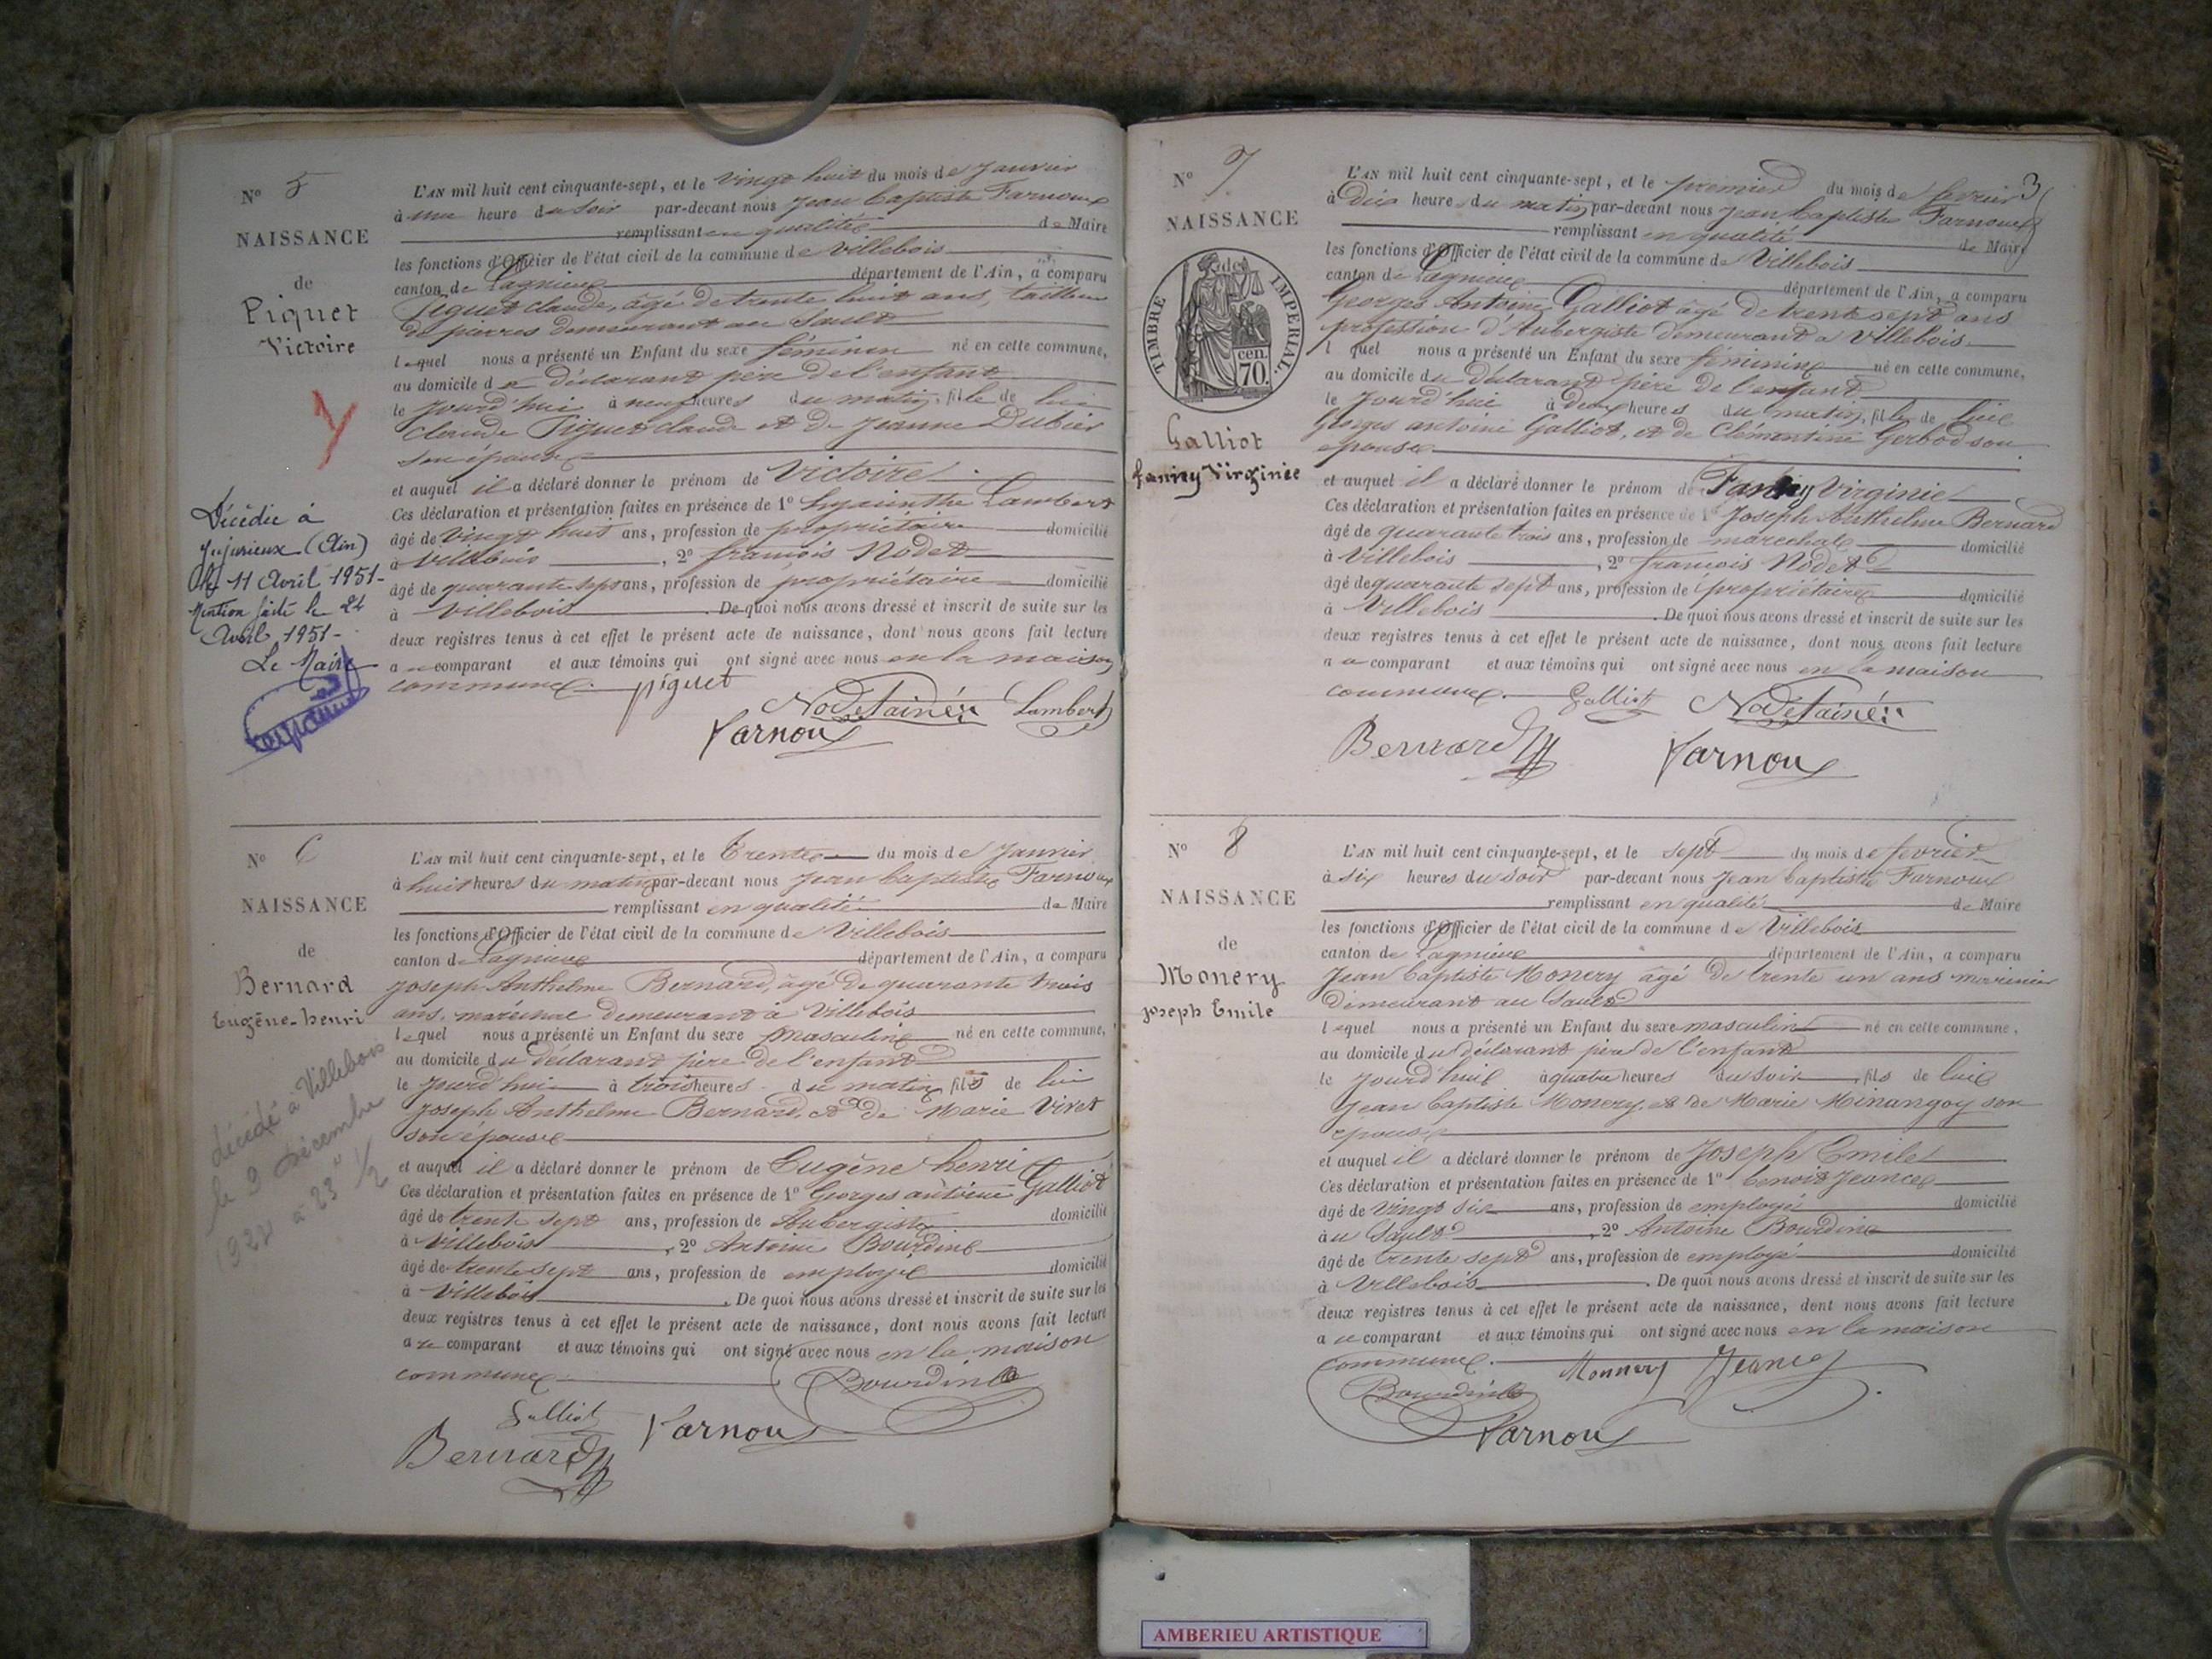 N° 5
NAISSANCE
de
Piquet
Victoire
Décédée à
Jujurieux (Ain)
le 11 Avril 1951-
Mention faite le 24
Avril 1951-
Le Maire
L'AN mil huit cent cinquante-sept, et le vingt huit du mois de Janvier
à une heure du soir par-devant nous Jean Baptiste Farnoux
remplissant en qualité de Maire
les fonctions d'Officier de l'état civil de la commune de Villebois
canton de Lagnieu département de l'Ain, a comparu
Piquet Claude, âgé de trente huit ans, tailleur
de pierres demeurant au Sault
lequel nous a présenté un Enfant du sexe féminin né en cette commune,
au domicile du déclarant père de l'enfant
le jourd'hui à neuf heures du matin, fille de lui
Claude Piquet Claude et de Jeanne Dubier
son épouse
et auquel il a déclaré donner le prénom de Victoire
Ces déclaration et présentation faites en présence de 1° hyacinthe Lambert
âgé de vingt huit ans, profession de propriétaire domicilié
à Villebois, 2° françois Nodet
âgé de quarante sept ans, profession de propriétaire domicilié
à Villebois. De quoi nous avons dressé et inscrit de suite sur les
deux registres tenus à cet effet le présent acte de naissance, dont nous avons fait lecture
au comparant et aux témoins qui ont signé avec nous en la maison
commune. piguet
Nodet ainé Lambert
Farnoux
N° 6
NAISSANCE
de
Bernard
Eugène-henri
décédé à Villebois
le 9 décembre
à 23 h 1/2
L'AN mil huit cent cinquante-sept, et le Trente du mois de Janvier
à huit heures du matin par-devant nous Jean Baptiste Farnoux
remplissant en qualité de Maire
les fonctions d'Officier de l'état civil de la commune de Villebois
canton de Lagnieu département de l'Ain, a comparu
Joseph Anthelme Bernard, âgé de quarante trois
ans, maréchal demeurant à Villebois
lequel nous a présenté un Enfant du sexe masculin né en cette commune,
au domicile du déclarant père de l'enfant
le jourd'hui à trois heures du matin, fils de lui
Joseph Anthelme Bernard, et de Marie Vivet
son épouse
et auquel il a déclaré donner le prénom de Eugène henri
Ces déclaration et présentation faites en présence de 1° Georges antoine Galliot
âgé de trente sept ans, profession de Aubergiste domicilié
à Villebois, 2° Antoine Bourdin
âgé de trente sept ans, profession de employé domicilié
à Villebois. De quoi nous avons dressé et inscrit de suite sur les
deux registres tenus à cet effet le présent acte de naissance, dont nous avons fait lecture
au comparant et aux témoins qui ont signé avec nous en la maison
commune Bourdin
Galliot
Bernard Farnoux
3
N° 7
NAISSANCE
de
TIMBRE IMPERIAL.
70. cen.
Galliot
fanny Virginie
L'AN mil huit cent cinquante-sept, et le premier du mois de fevrier
à Dix heures du matin par-devant nous Jean Baptiste Farnoux
remplissant en qualité de Maire
les fonctions d'Officier de l'état civil de la commune de Villebois
canton de Lagnieu département de l'Ain, a comparu
Georges Antoine Galliot âgé de trente sept ans
profession d'Aubergiste demeurant a Villebois
l quel nous a présenté un Enfant du sexe féminin né en cette commune,
au domicile du déclarant père de l'enfant
le jourd'hui à deux heures du matin, fille de lui
Georges antoine Galliot, et de Clémentine Gerbod son
epouse
et auquel il a déclaré donner le prénom de Fanny Virginie
Ces déclaration et présentation faites en présence de 1° Joseph Anthelme Bernard
âgé de quarante trois ans, profession de marechal domicilié
à Villebois, 2° françois Nodet
âgé de quarante sept ans, profession de propriétaire domicilié
à Villebois. De quoi nous avons dressé et inscrit de suite sur les
deux registres tenus à cet effet le présent acte de naissance, dont nous avons fait lecture
au comparant et aux témoins qui ont signé avec nous en la maison
commune. Galliot Nodet ainé
Bernard Farnoux
N° 8
NAISSANCE
de
Monery
joseph Emile
L'AN mil huit cent cinquante-sept, et le sept du mois de fevrier
à six heures du soir par-devant nous Jean Baptiste Farnoux
remplissant en qualité de Maire
les fonctions d'Officier de l'état civil de la commune de Villebois
canton de Lagnieu département de l'Ain, a comparu
Jean Baptiste Monery âgé de trente un ans marinier
demeurant au Sault
lequel nous a présenté un Enfant du sexe masculin né en cette commune,
au domicile du déclarant père de l'enfant
le jourd'hui à quatre heures du soir, fils de lui
Jean Baptiste Monery, et de Marie Minangoy son
epouse
et auquel il a déclaré donner le prénom de Joseph Emile
Ces déclaration et présentation faites en présence de 1° benoit Jeancey
âgé de vingt six ans, profession de employé domicilié
àu Sault, 2° Antoine Bourdin
âgé de trente sept ans, profession de employé domicilié
à Villebois. De quoi nous avons dressé et inscrit de suite sur les
deux registres tenus à cet effet le présent acte de naissance, dont nous avons fait lecture
au comparant et aux témoins qui ont signé avec nous en la maison
commune. Monnery Jeancey
Bourdin
Farnoux
AMBERIEU ARTISTIQUE